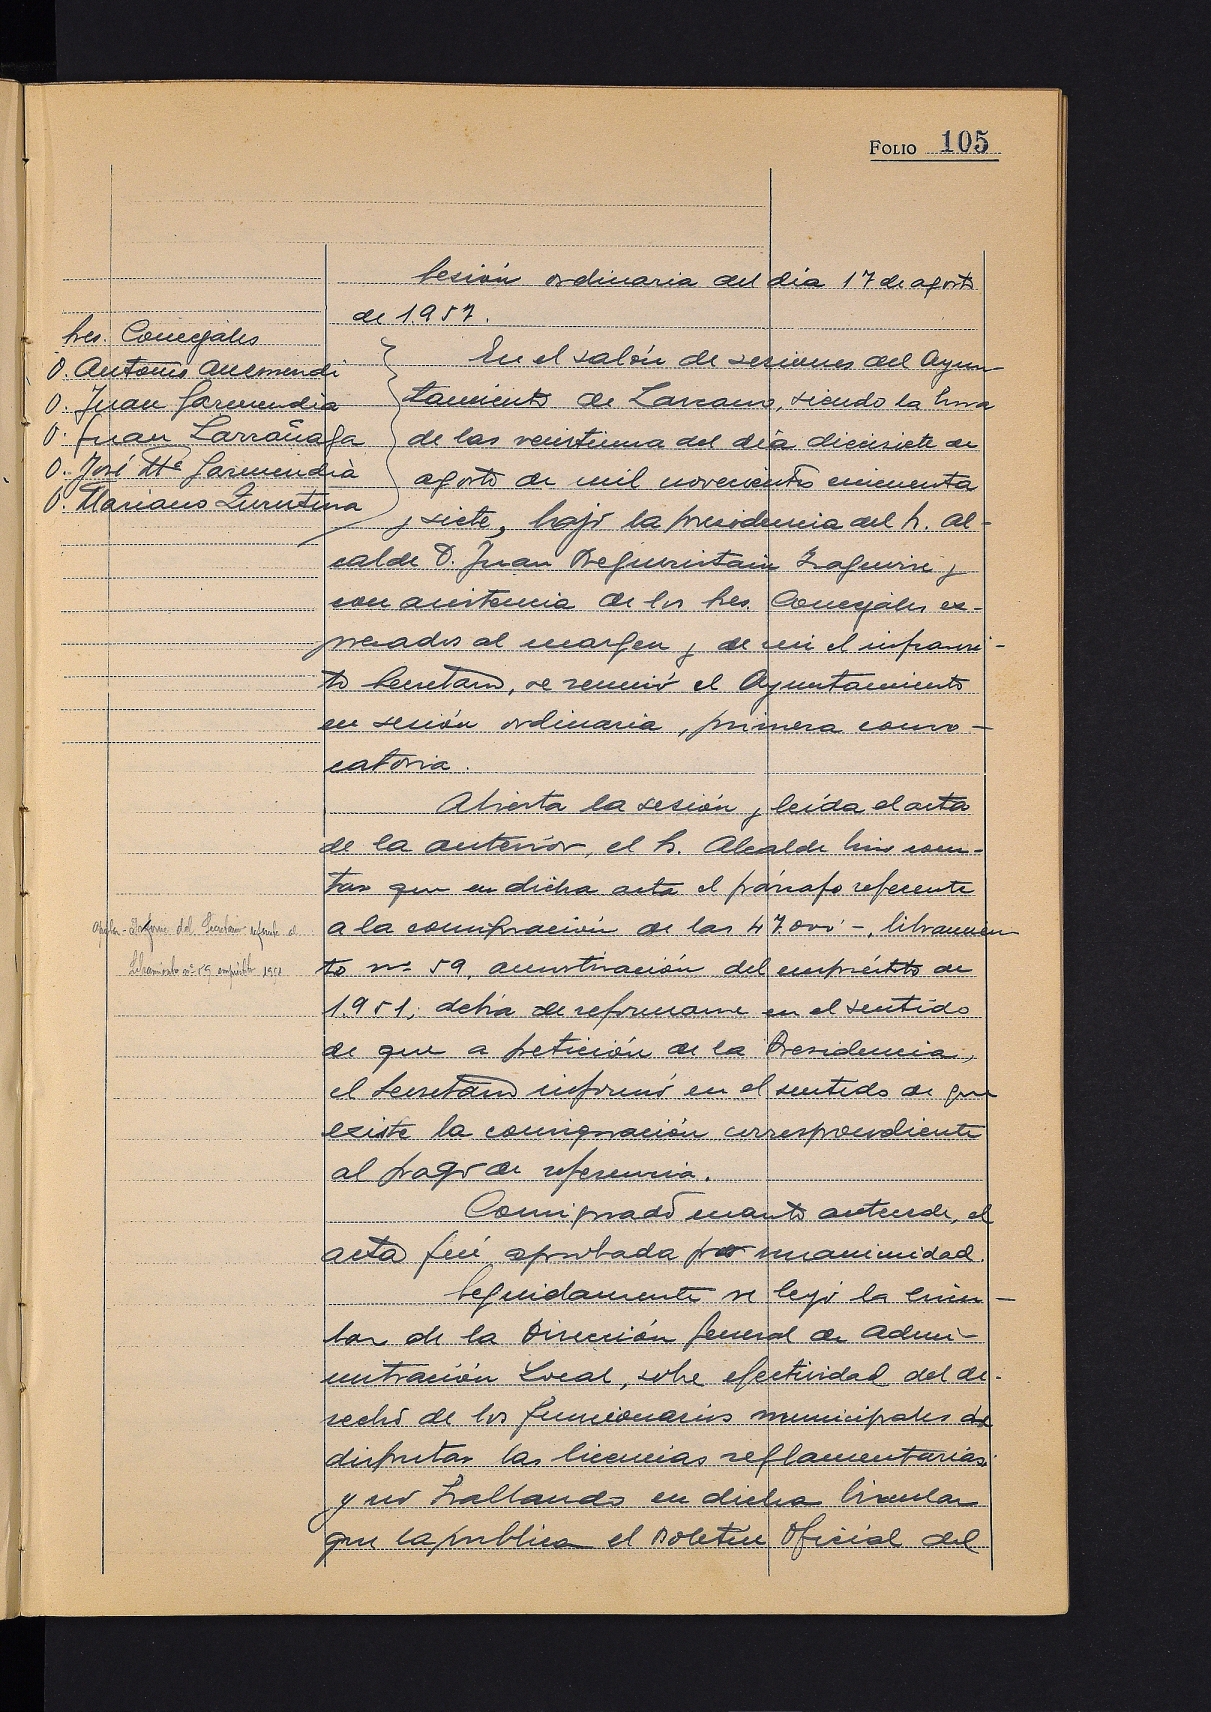 FOLIO 105
Sesión ordinaria del día 17 de agosto
de 1957.
Sres. Concejales
D. Antonio Auzmendi
D. Juan Garmendia
D. Juan Larrañaga
D. José Mª Garmendia
D. Mariano Zurutuza
En el salón de sesiones del Ayun-
tamiento de Lazcano, siendo la hora
de las veintiuna del día diecisiete de
agosto de mil novecientos cincuenta
y siete, bajo la presidencia del Sr. Al-
calde D. Juan Beguiristain Izaguirre y
con asistencia de los Sres. Concejales ex-
presados al margen y de mi el infrascri-
to Secretario, se reunió el Ayuntamiento
en sesión ordinaria, primera convo-
catoria.
Abierta la sesión y leída el acta
de la anterior, el Sr. Alcalde hizo cons-
tar que en dicha acta el párrafo referente
a la consignación de las 47000 -, libramien
to nº 59, amortización del empréstito de
1951, debía de reformarse en el sentido
de que a petición de la Presidencia,
el Secretario informó en el sentido de que
existe la consignación correspondiente
al pago de referencia.
Informe del Secretario referente al
Libramiento nº 59 empréstito 1951
Consignado cuanto antecede, el
acta fué aprobada por unanimidad.
Seguidamente se leyó la Circu-
lar de la Dirección General de Admi-
nistración Local, sobre efectividad del de-
recho de los funcionarios municipales de
disfrutar las licencias reglamentarias
y no hallando en dicha Circular
que la publica el Boletín Oficial del